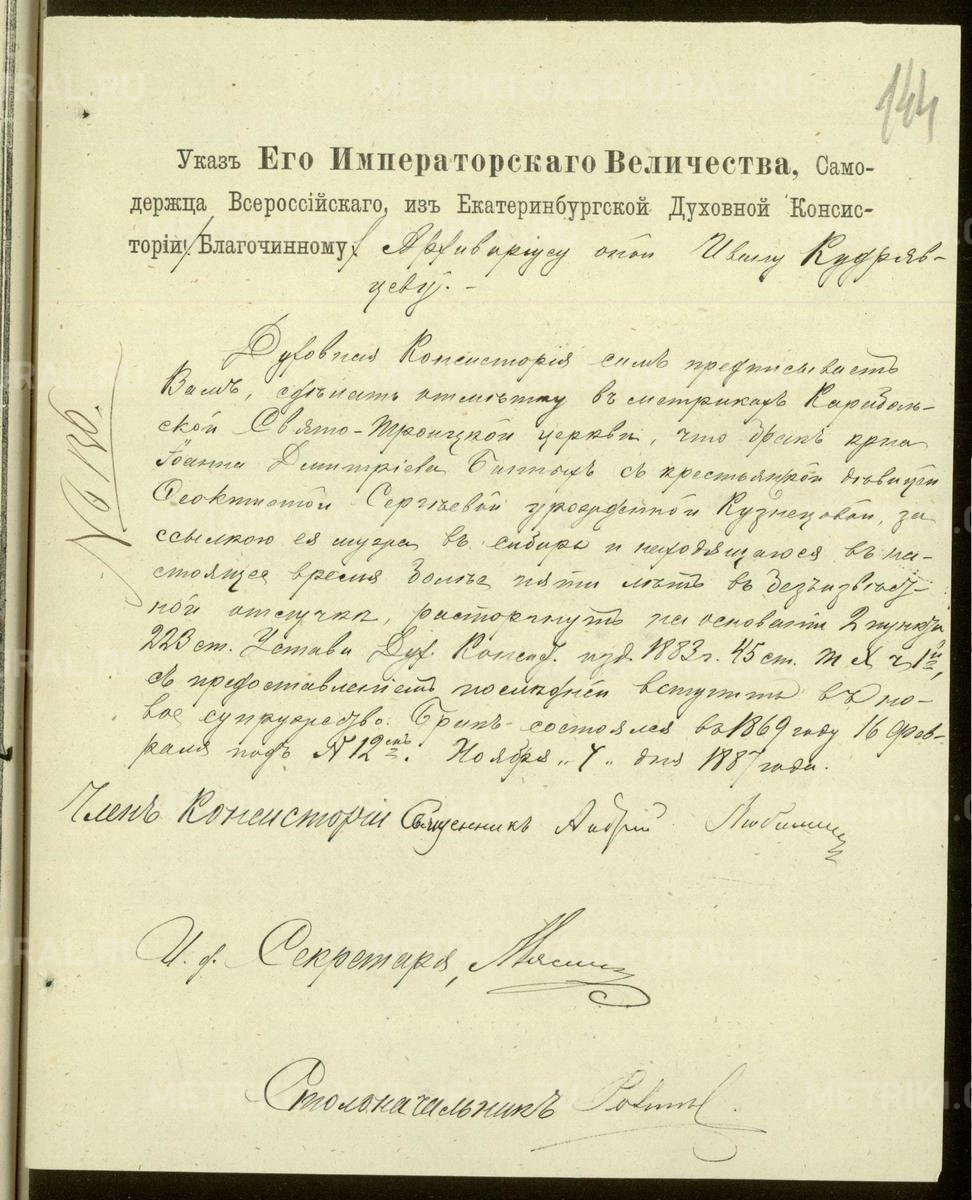 144
Указъ Его Императорскаго Величества, Само-
держца Всероссійскаго, изъ Екатеринбургской Духовной Консис-
торіи, Благочинному, Архиваріусу оной Ивану Кудряв-
цеву. -
Духовная Консисторія симъ предписываетъ
Вамъ, сдѣлать отмѣтку въ метрикахъ Карабаль-
ской Свято-Троицкой церкви, что бракъ крна
Іоанна Димитріева съ крестьянкой дѣвицей
Ѳеоктистой Сергѣевой урожденной Кузнецовой, за
ссылкою ея мужа въ сибирь и находящагося въ на-
стоящее время болѣе пяти лѣтъ въ безъизвѣст-
ной отлучкѣ, расторгнутъ на основаніи 2 пункта
223 ст. Устава Дух. Консис. изд. 1883 г. 45 ст. т X ч 1й,
съ предоставленіемъ послѣдней вступить въ но-
вое супружество. Бракъ состоялся въ 1869 году 16 Фев-
раля подъ № 12мъ. Ноября „ 7 „ дня 1887 года.
Членъ Консисторіи Священникъ Андрей
И. д. Секретаря,
Столоначальникъ
METRIKI.GASO-URAL.RU